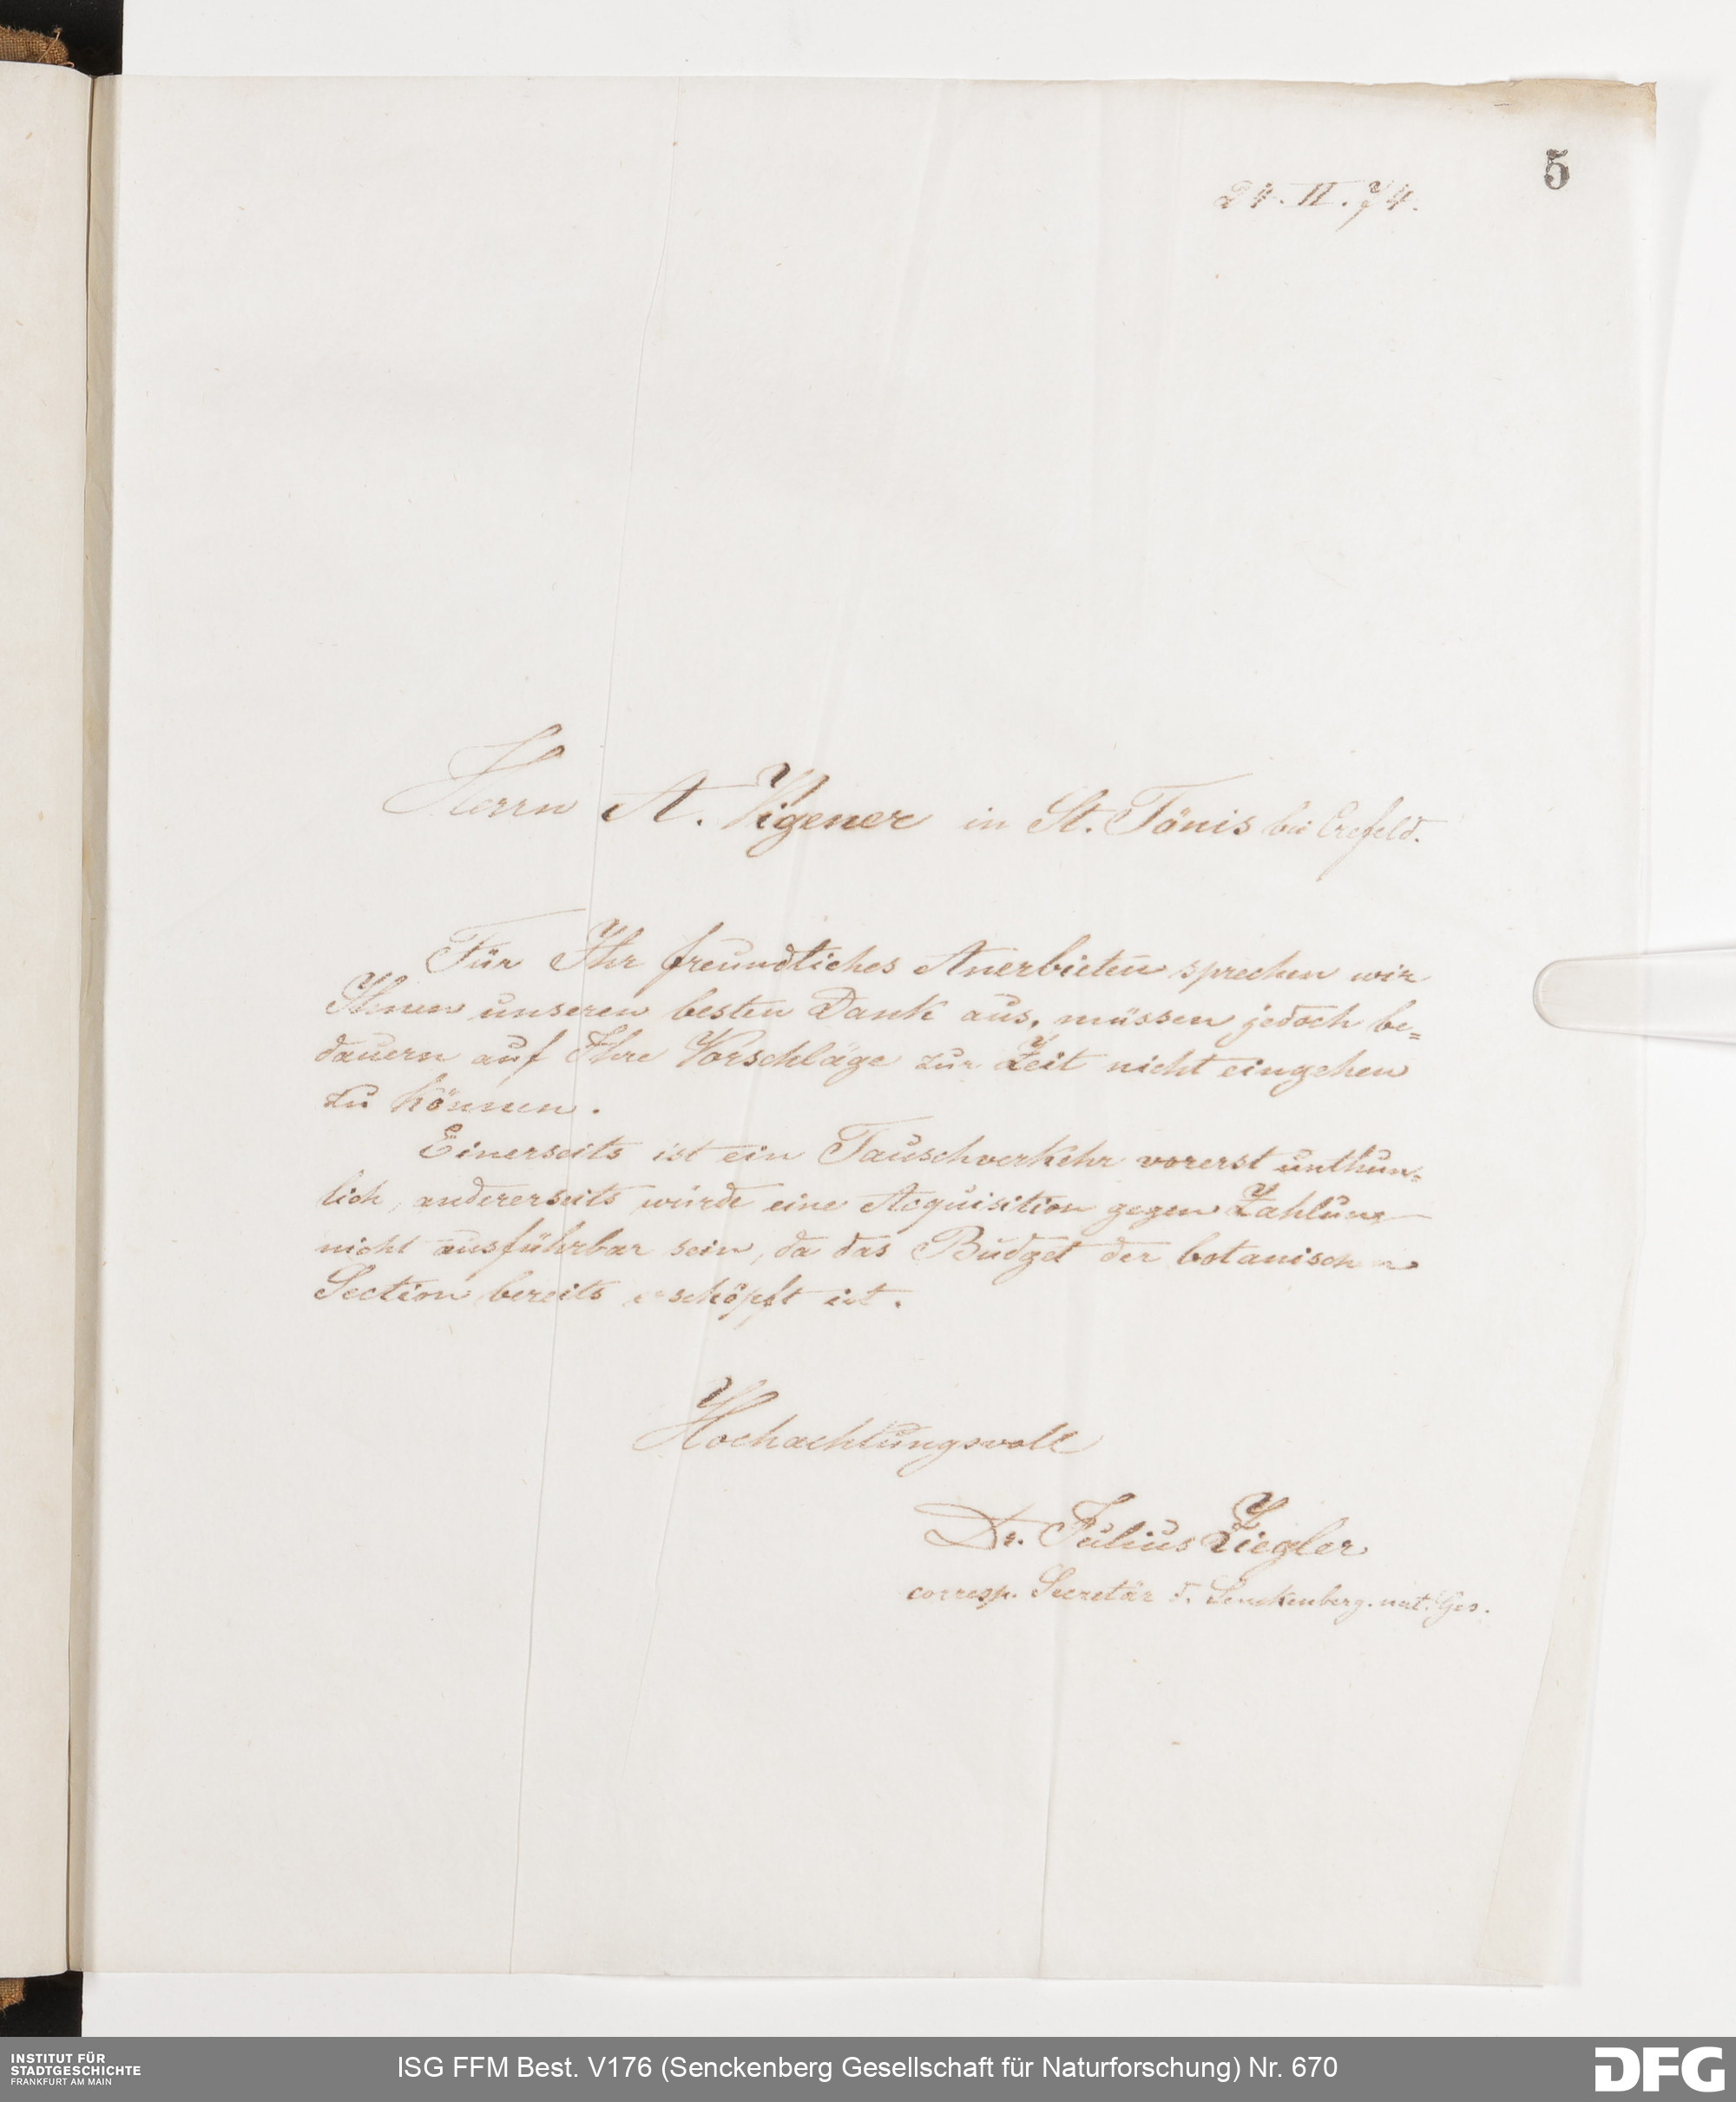 5
24. II. 74.
Herrn A. Vigener in St. Tönis bei Crefeld.
Für Ihr freundliches Anerbieten sprechen wir
Ihnen unseren besten Dank aus, müssen jedoch be=
dauern auf Ihre Vorschläge zur Zeit nicht eingehen
zu können.
Einerseits ist ein Tauschverkehr vorerst unthun=
lich, andererseits würde eine Acquisition gegen Zahlung
nicht ausführbar sein, da das Budget der botanischen
Section bereits erschöpft ist.
Hochachtungsvoll
Dr. Julius Ziegler
corresp. Secretär d. Senckenberg. nat. Ges.
INSTITUT FÜR
STADTGESCHICHTE
FRANKFURT AM MAIN
ISG FFM Best. V176 (Senckenberg Gesellschaft für Naturforschung) Nr. 670
DFG